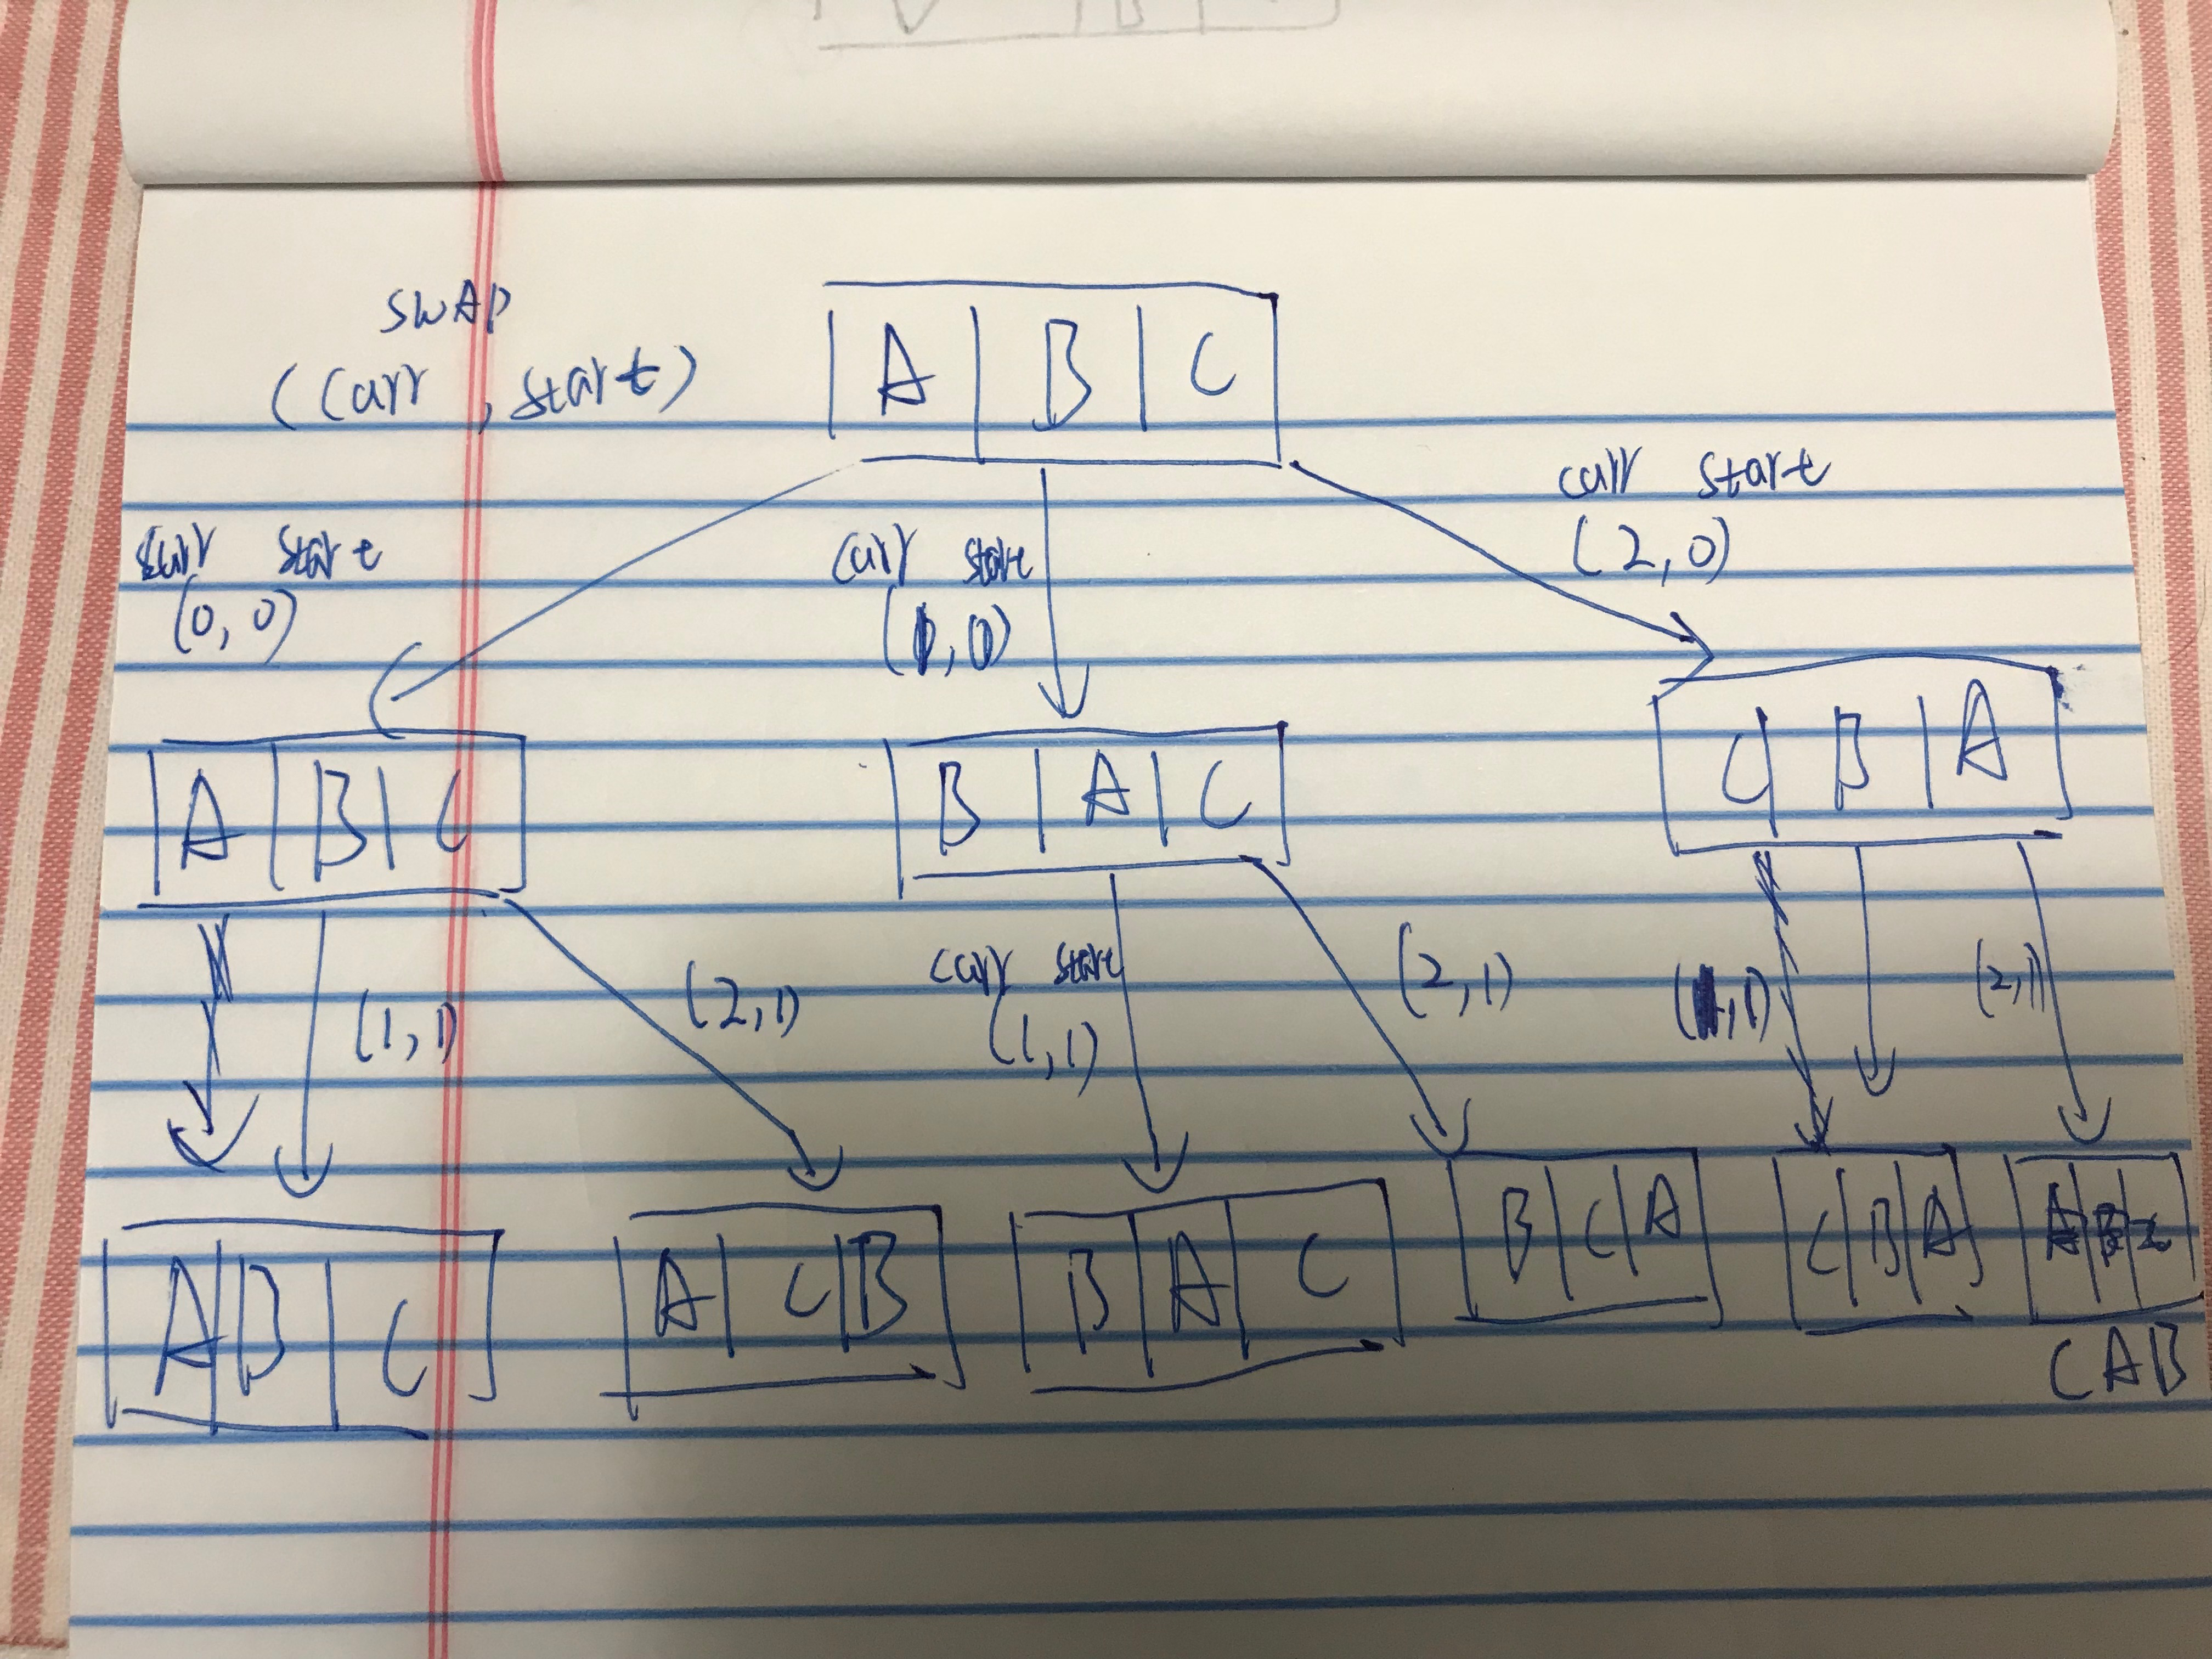 SWAP
(curr, start)
A B C
curr start
(2,0)
curr start
(0,0)
curr start
(1,0)
A B C
B A C
C B A
(1,1)
(2,1)
curr start
(1,1)
(2,1)
(1,1)
(2,1)
A B C
A C B
B A C
B C A
C B A
C A B